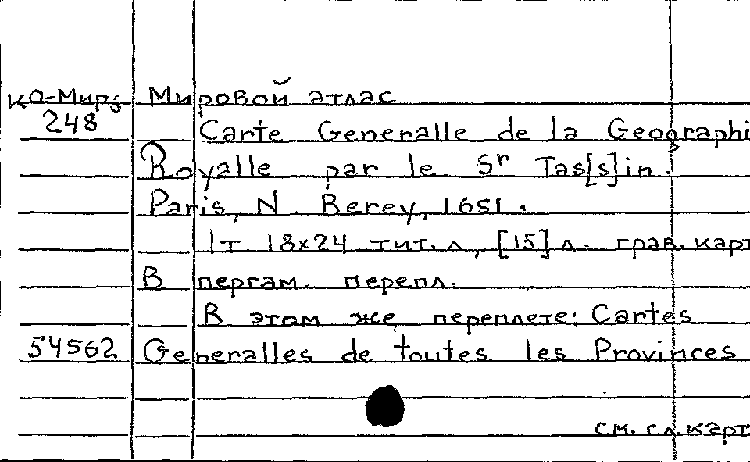 Мировой атлас
КО-Мир
248 Carte Generalle de la Geographi
Royalle par le Sr Tas[s]in.
Paris, N. Berey, 1651.
1т 18х24 тит. л., [15] л. грав. карт
В пергам. перепл.
В этом же переплете: Cartes
54562 Generalles de toutes les Provinces
см. сл. карт